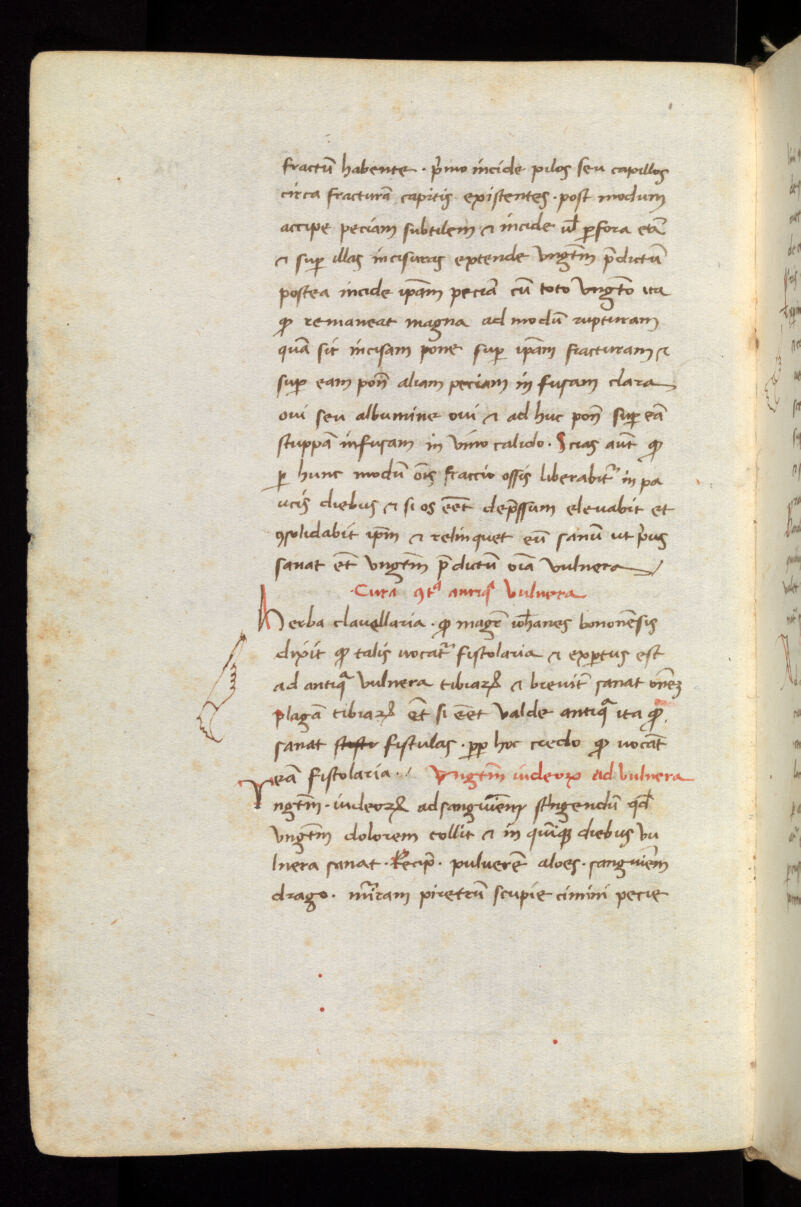 fractū habente · p̄mo incide pilos seu capillos
circa fracturā capitis existentes · post modum
accipe peciam subtilem ⁊ incide ul̄ ꝑfora etā
⁊ suꝑ illas incisuras extende vngtm̄ p̄dictū
postea incide ip̄am peciā cū toto vngto ita
ꝙ remaneat magna ad modū rupturam
quā sit incisam pone suꝑ ip̄am fracturam ⁊
suꝑ eam pon̄ aliam peciam in fusam clara
oui seu albumine oui ⁊ ad huc pon̄ suꝑ eā
stuppā infusam in vino calido · Scias aūt ꝙ
ꝑ hunc modū oīs fractio ossis liberabit᷑ in pa
ucis diebus ⁊ si os eēt dep̄ssum eleuabit et
ꝯsolidabit ip̄m ⁊ relinquet eū sanū ut p̄us
sanat ēt vngtm̄ p̄dictū oīa vulnera
· Cura ꝯtᵃ antiqᵃ vulnera
Herba clauellaria · ꝙ magr̄ ioh̄anes bononēsis
dixit ꝙ talis uocat᷑ fistolaria ⁊ exꝑtus est
ad antiqᵃ vulnera tibiaꝝ ⁊ breuit᷑ sanat oneꝫ
plagā tibiaꝝ ēt si eēt valde antiqᵃ ita ꝙ
sanat fistulas · ꝓp hoc credo ꝙ uocāt
eā fistolaria · Vngtm̄ iudeoꝝ ad vulnera
Vngtm̄ · iudeoꝝ ad sanguinē stringendū qd̄
vngtm̄ dolorem tollit ⁊ in quinqꝫ diebus vu
lnera sanat · Recip̄ · puluerē aloes · sanguinem
drago · mirram piretrū scupie cimini pecie